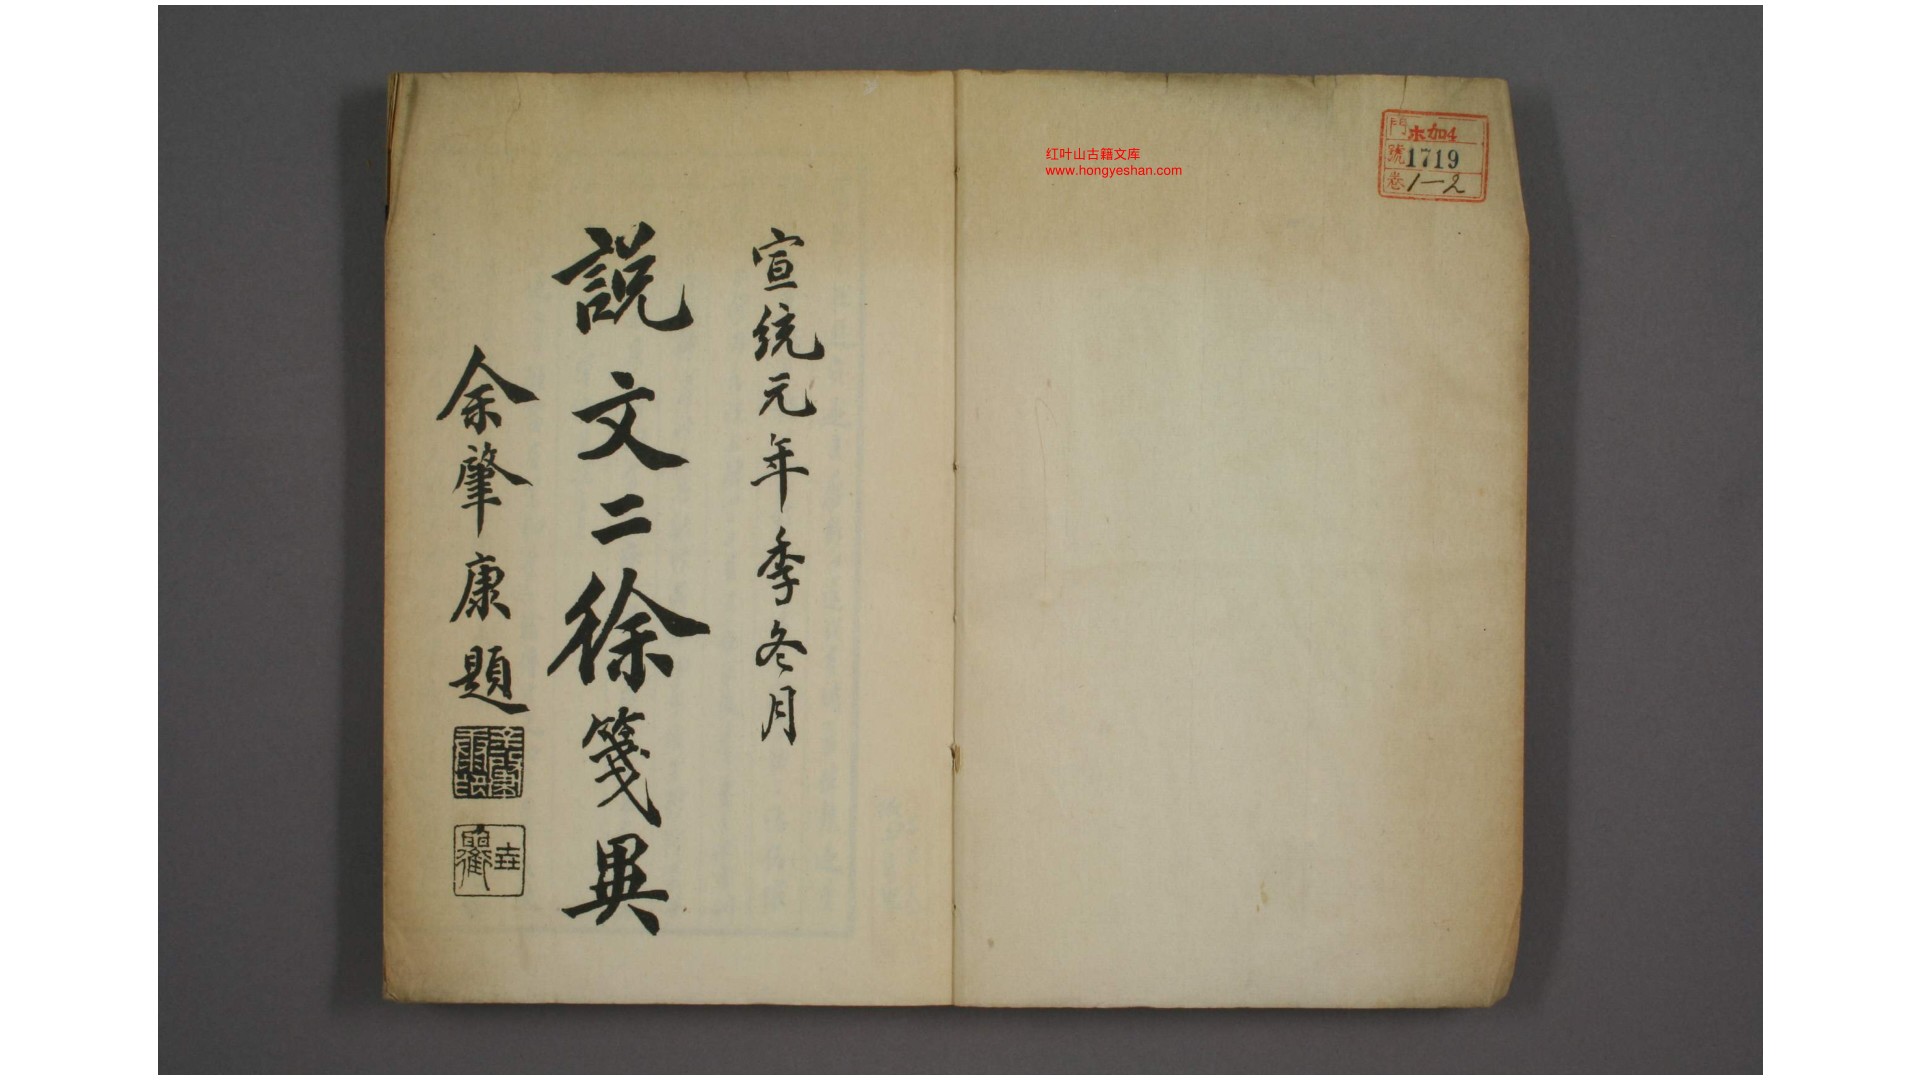 红叶山古籍文库
www.hongyeshan.com
門 ホ加4
號 1719
卷 1-2
宣統元年季冬月
說文二徐箋異
余肇康題